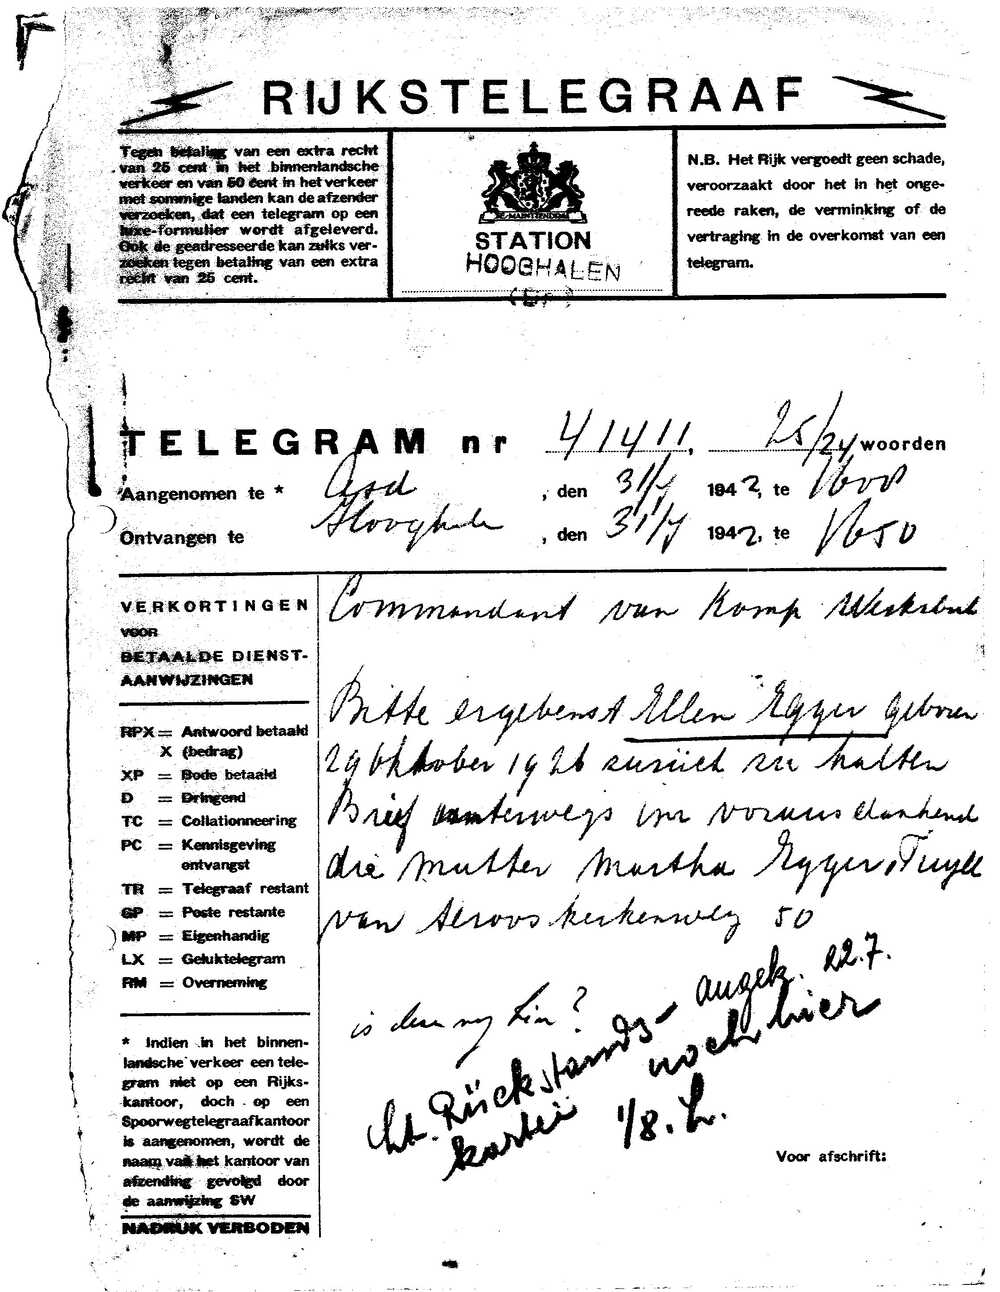 RIJKSTELEGRAAF
Tegen betaling van een extra recht
van 25 cent in het binnenlandsche
verkeer en van 50 cent in het verkeer
met sommige landen kan de afzender
verzoeken, dat een telegram op een
luxe-formulier wordt afgeleverd.
Ook de geadresseerde kan zulks ver-
zoeken tegen betaling van een extra
recht van 25 cent.
JE MAINTIENDRAI
STATION
HOOGHALEN
(Dr.)
N.B. Het Rijk vergoedt geen schade,
veroorzaakt door het in het onge-
reede raken, de verminking of de
vertraging in de overkomst van een
telegram.
TELEGRAM nr 41411. 25/24 woorden
Aangenomen te * Asd, den 31/7 1942, te 1600
Ontvangen te Hooghalen, den 31/7 1942, te 1650
VERKORTINGEN
VOOR
BETAALDE DIENST-
AANWIJZINGEN
RPX = Antwoord betaald
X (bedrag)
XP = Bode betaald
D = Dringend
TC = Collationneering
PC = Kennisgeving
ontvangst
TR = Telegraaf restant
GP = Poste restante
MP = Eigenhandig
LX = Geluktelegram
RM = Overneming
* Indien in het binnen-
landsche verkeer een tele-
gram niet op een Rijks-
kantoor, doch op een
Spoorwegtelegraafkantoor
is aangenomen, wordt de
naam van het kantoor van
afzending gevolgd door
de aanwijzing SW
NADRUK VERBODEN
Commandant van Kamp Westerbork
Bitte ergebenst Ellen Egger geboren
29 Oktober 1926 zurück zu halten
Brief unterwegs im voraus dankend
die Mutter Martha Egger, Tuyll
van Serooskerkenweg 50
is deze nog hier?
lt. Rückstands- angek. 22.7.
kartei noch hier
1/8. L.
Voor afschrift: